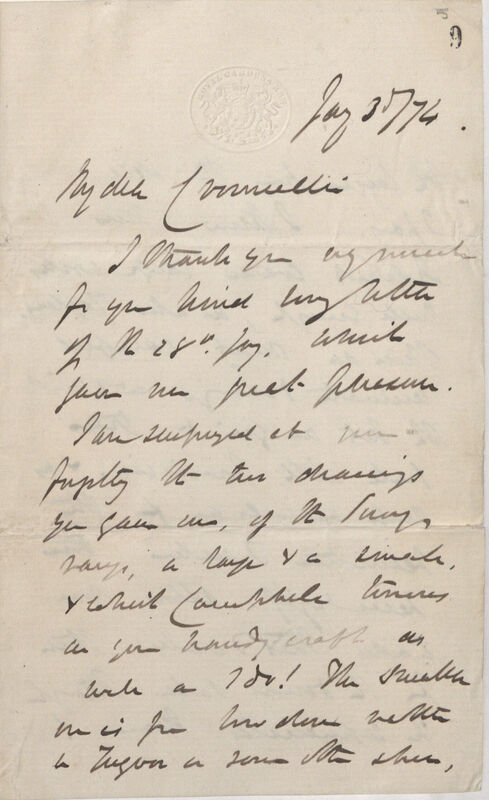 9
ROYAL GARDENS KEW
Jay 3d/74.
My dear
I thank you very much
for your kind long letter
of the 28th. Jay. which
gave me great pleasure.
I am surprised at your
forgetting the two drawings
you gave me, of the
range, a large & a small,
& which Campbell knows
as your handy craft as
well as I do! The smaller
one is from low down
or some other where,